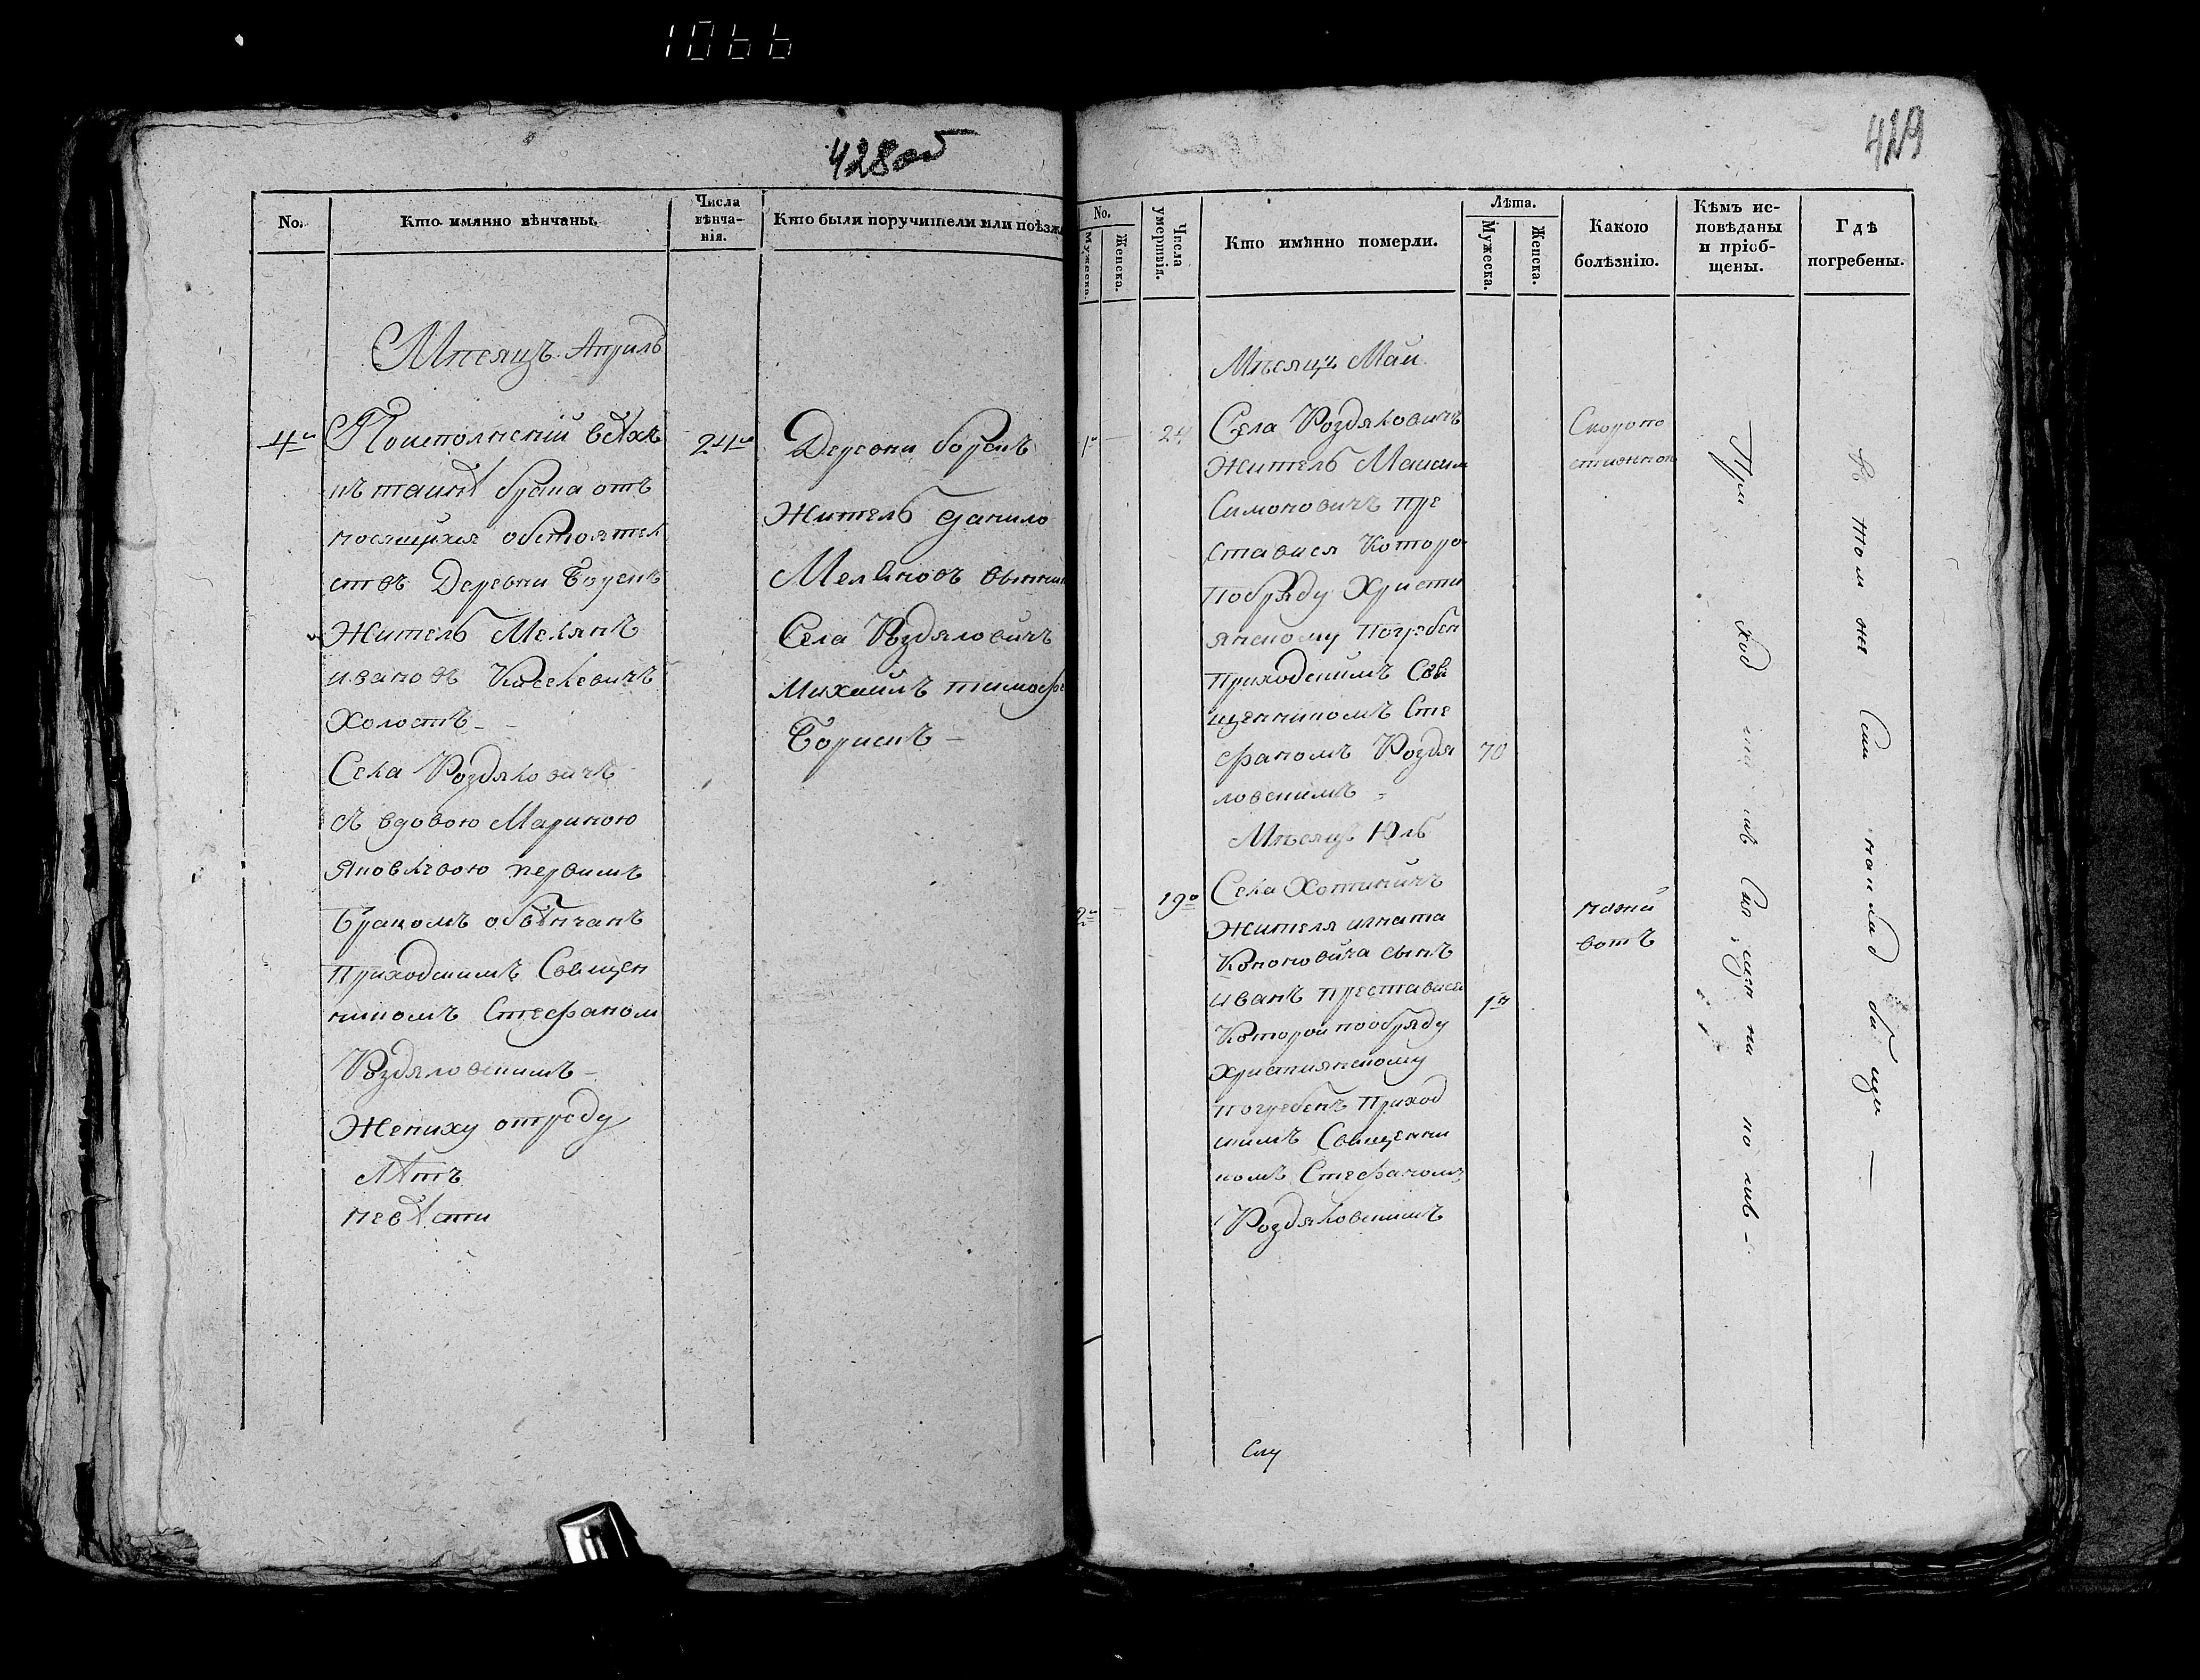 1066
428об
No.
Кто имянно вѣнчаны.
Числа
вѣнча-
нія.
Кто были поручители или поѣзж
Мѣсяцъ Априль
4º
По исполнении всѣхъ
къ таинѣ брака от
носящихся обстоятел
ствъ Деревни Борекъ
Житель Мелянъ
Ивановъ
Холостъ
Села Роздяловичъ
съ вдовою Мариною
Яковлѣвою первимъ
Бракомъ обвѣнчанъ
Приходскимъ Священ
никомъ Стефаном
Роздяловскимъ
Жениху отроду
лѣтъ
невѣсти
24º
Деревни борекъ
Житель Данило
Села Роздяловичъ
Михаилъ тимофе
Борисикъ
429
No.
Мужеска.
Женска.
Числа
умершвія.
Кто имянно померли.
Лѣта.
Мужеска.
Женска.
Какою
болѣзнію.
Кѣмъ ис-
повѣданы
и пріоб-
щены.
Гдѣ
погребены.
Мѣсяцъ Май
1º
24
Села Роздяловичъ
Житель Максим
Симоновичъ пре
ставися Которо
по обряду Христи
янскому Погребен
приходскимъ Свя
щенникомъ Сте
фаномъ Роздя
ловскимъ
70
Скоропо
стижной
Мѣсяцъ Юль
2º
19º
Села Хотиничъ
Жителя игната
Кононовича сынъ
иванъ преставися
Которой по обряду
Християнскому
погребенъ Приход
скимъ Священни
комъ Стефаномъ
Роздяловскимъ
1
вотъ
Приходскимъ Священникомъ
На томже Сели кладбищи